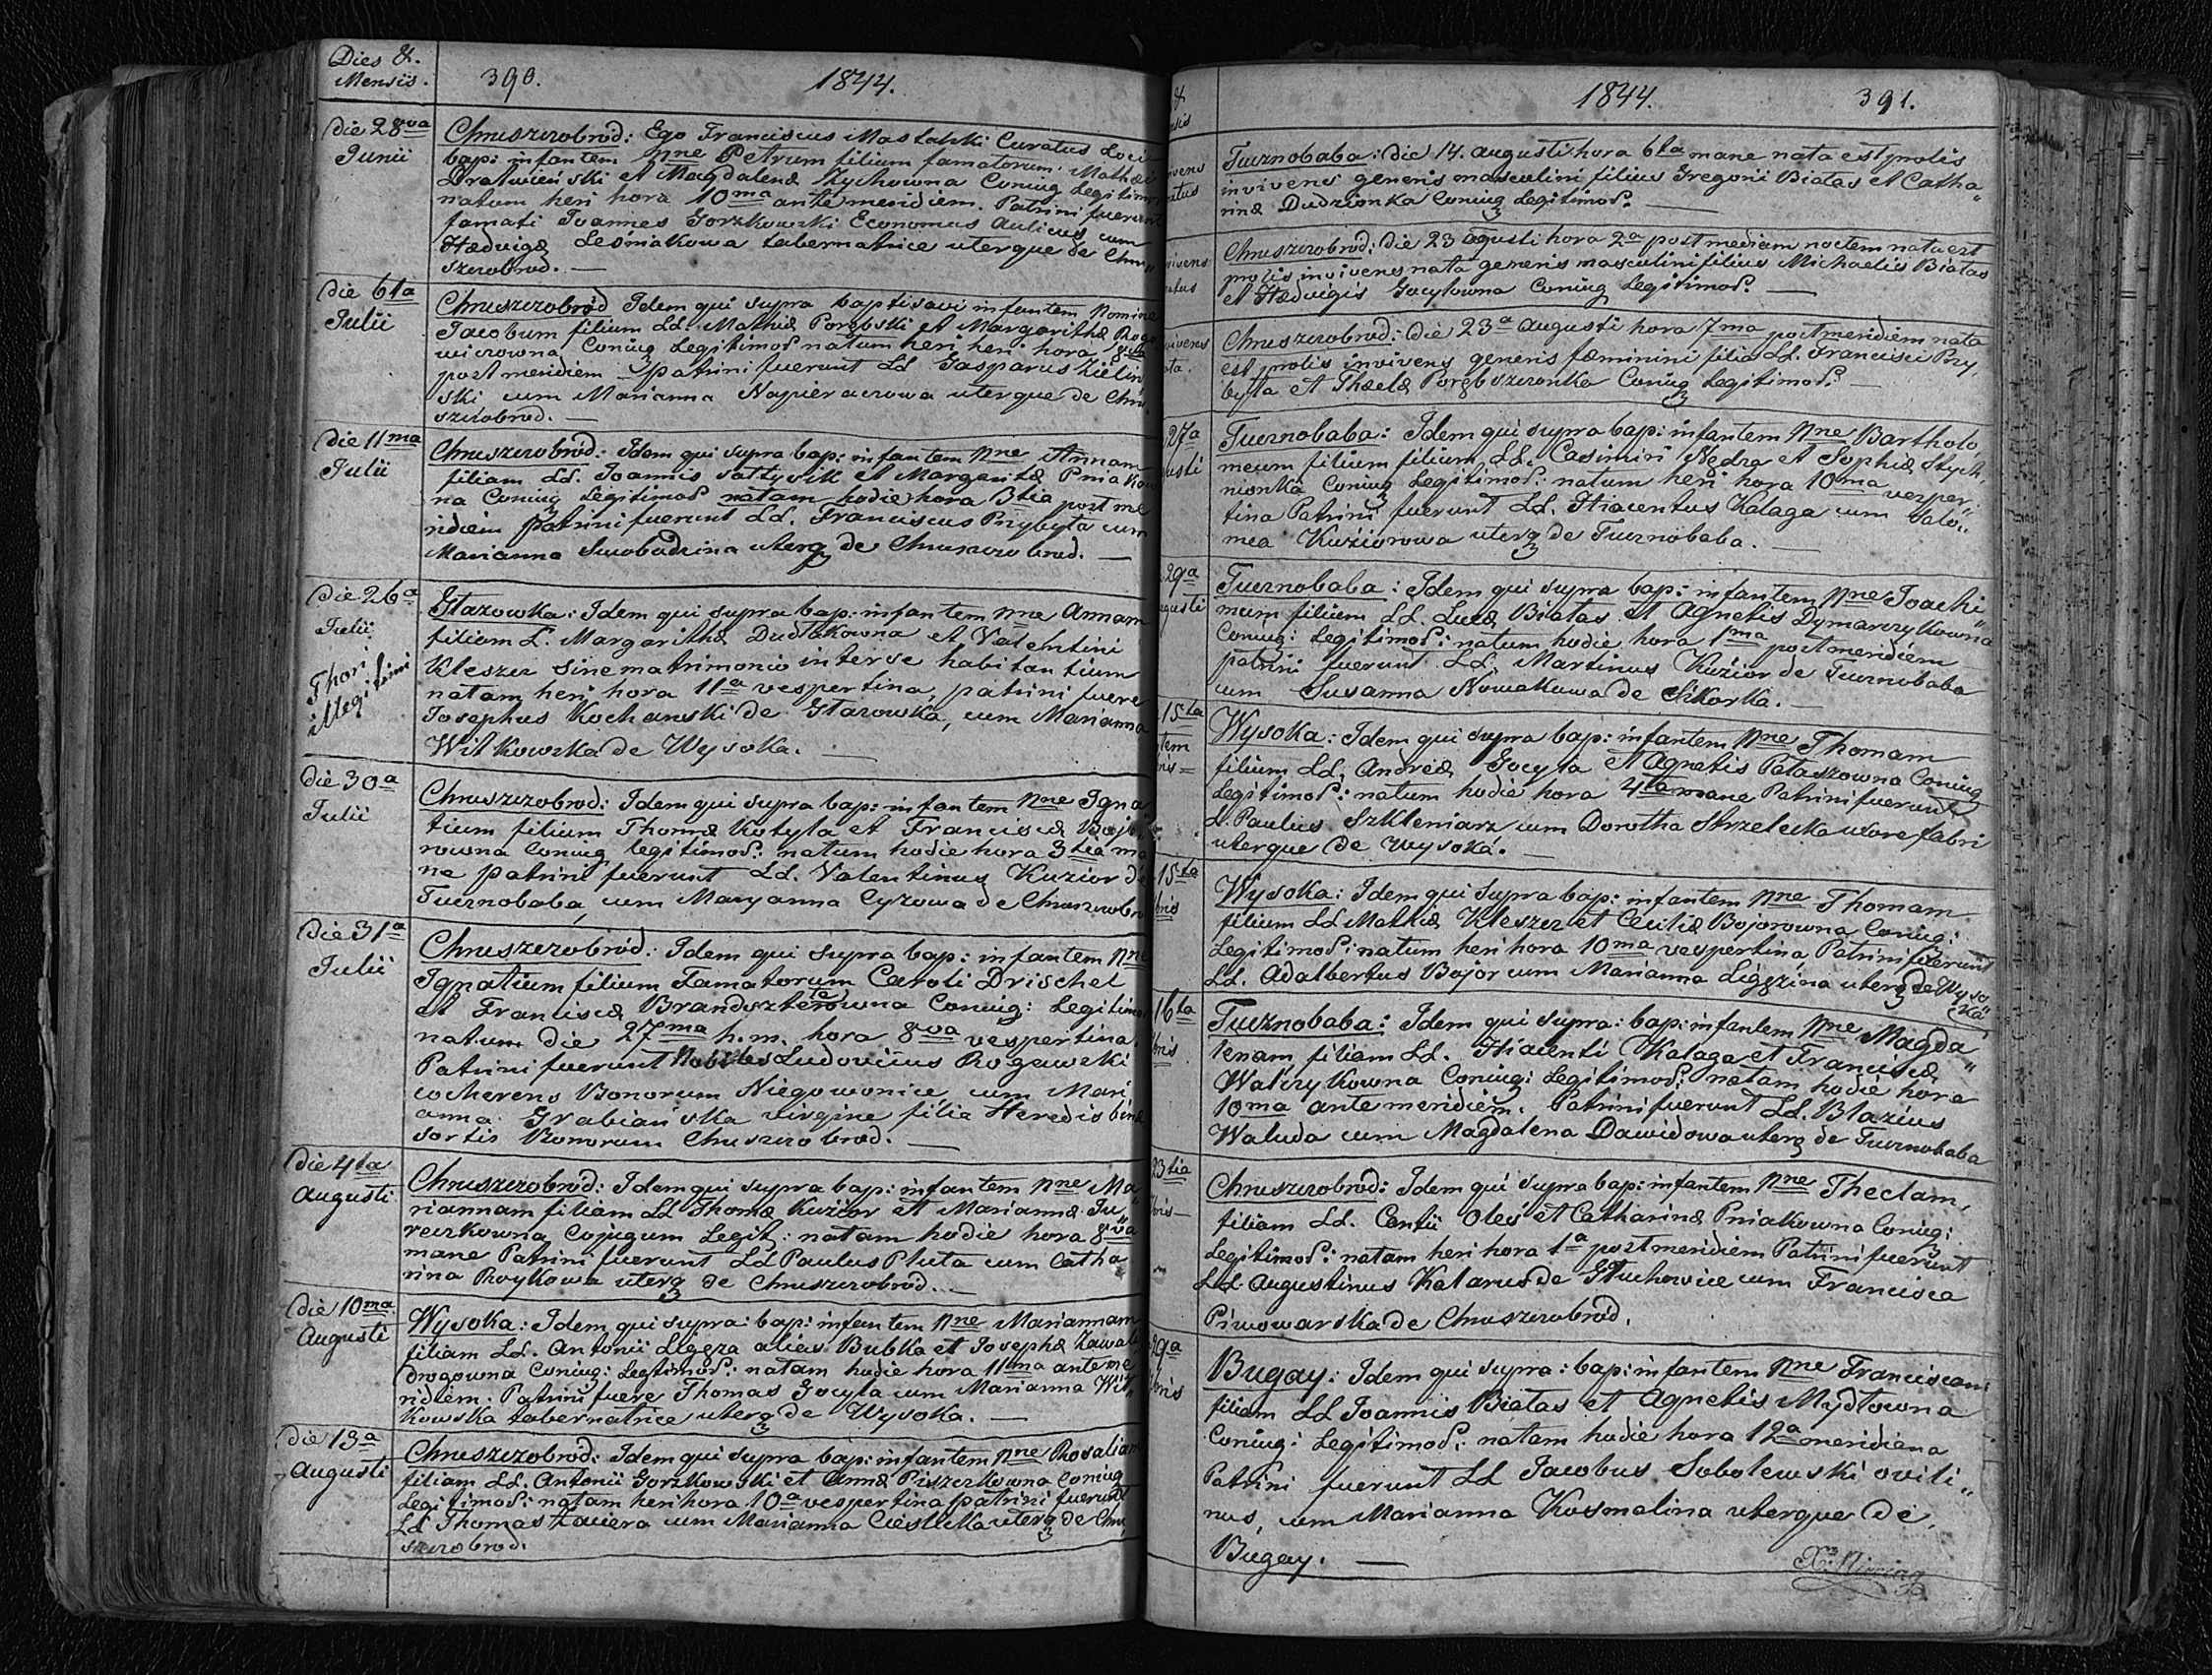 Dies &.
Mensis.
390.
1844.
Die 28va
Junii
Chruszczobród: Ego Franciscus Curatus Loci
bap: infantem Nne Petrum filium famatorum Mathæi
et Magdalenæ Zychowna Coniug Legitimo
natum heri hora 10ma ante meridiem. Patrini fuerunt
famati Joannes Gorzkowski Economus Aulicus cum
Hædvigæ Leśniakowa tabernatrice uterque de Chru"
szczobrod. —
Die 6ta
Julii
Chruszczobród Idem qui supra baptisavi infantem Nomine
Jacobum filium LL. Mathiæ Porębski et Margarithæ Rogo
wiczowna Coniug Legitimos natum heri heri hora 8va
post meridiem patrini fuerunt LL Gasparus Zielin
ski cum Marianna uterque de Chru
szczobrod. —
Die 11ma
Julii
Chruszczobród: Idem qui supra bap: infantem Nne Annam
filiam LL. Joannis Sattysik et Margaritæ Pniakow
na Coniug Legitimos natam hodie hora 3tia post me
ridiem patrini fuerunt LL. Franciscus Przybyta cum
Marianna Swobodzina uterq de Chruszczobrod. —
Die 26a
Julii
Thori
illegitimi
Głazowka: Idem qui supra bap: infantem Nne Annam
filiam L. Margarithæ Dudłakowna et Valentini
Kleszcz sine matrimonio inter se habitantium
natam heri hora 11a vespertina, patrini fuere
Josephus Kochanski de Głazowka, cum Marianna
Witkowska de Wysoka. —
Die 30a
Julii
Chruszczobrod: Idem qui supra bap: infantem Nne Igna
tium filium Thomæ Kotyla et Franciscæ
rowna Coniug legitimos: natum hodie hora 3tia ma
ne patrini fuerunt LL. Valentinus Kuzior de
Tucznobaba, cum Maryanna Cyzowa de Chruszczobro
Die 31a
Julii
Chruszczobród: Idem qui supra bap: infantem Nne
Ignatium filium Famatorum Caroli Drischel
et Franciscæ Coniug: Legitimo
natum die 27ma h.m. hora 8va vespertina.
Patrini fuerunt Nobiles Ludovicus Rogawski
coherens Bonorum Niegowonice, cum Mari
anna Grabiańska virgine filia Heredis binæ
sortis Bonorum Chruszczobrod. —
Die 4ta
Augusti
Chruszczobród: Idem qui supra bap: infantem Nne Ma"
riannam filiam LL Thomæ Kuzior et Mariannæ Ju"
reczkowna Cojugum Legit: natam hodie hora 8va
mane Patrini fuerunt LL Paulus Pluta cum Catha
rina Roykowa uterq de Chruszczobród. —
Die 10ma
Augusti
Wysoka: Idem qui supra: bap: infantem Nne Mariannam
filiam LL. Antonii Ligęza alias Bubka et Josephæ Zawa
drogowna Coniug: Legtimos: natam hodie hora 11ma ante me
ridiem. Patrini fuere Thomas Gocyla cum Marianna Wit
kowska tabernatrice uterq de Wysoka. —
Die 13a
Augusti
Chruszczobród: Idem qui supra bap: infantem Nne Rosaliam
filiam LL. Antonii Gorzkowski et Annæ Piszczkowna Coniug
Legitimos: natam heri hora 10a vespertina patrini fuerunt
LL Thomas cum Marianna Cieslicka uterq de Chru
szczobrod.
1844.
391.
Tucznobaba: Die 14. augusti hora 6ta mane nata est prolis
invivens generis masculini filius Gregorii Białas et Catha"
rinæ Dudzionka Coniug Legitimos. —
Chruszczobród: Die 23 agusti hora 2a post mediam noctem nata est
prolis invivens nata generis masculini filius Michaelis Białas
et Hædvigis Gocyłowna Coniug Legitimos. —
Chruszczobrod: Die 23a augusti hora 7ma post meridiem nata
est prolis invivens generis fæminini filia LL. Francisci Przy
byta et Thæclæ Porębszczonka Coniug Legitimos. —
27a
usti
Tucznobaba: Idem qui supra bap: infantem Nne Bartholo
meum filium filium LL. Casimiri Nędza et Sophiæ Stych
nionka Coniug Legitimos: natum heri hora 10ma vesper
tina Patrini fuerunt LL. Hiacentus Kalaga cum Salo"
mea Kuziorowa uterq de Tucznobaba. —
29a
gusti
Tucznobaba: Idem qui supra bap: infantem Nne Joachi"
mum filium LL. Lucæ Białas et Agnetis Dymarczykowna
Coniug: Legitimos: natum hodie hora 1ma post meridiem
patrini fuerunt LL. Martinus Kuzior de Tucznobaba
cum Susanna Nowakowa de Sikorka. —
15ta
Wysoka: Idem qui supra bap: infantem Nne Thomam
filium LL. Andreæ Gocyła et Agnetis Pataszowna Coniug
Legitimos: natum hodie hora 4ta mane Patrini fuerunt
L. Paulus Szkleniarz cum Dorotha Strzelecka uxore fabri
uterque de Wysoka. —
15ta
bris
Wysoka: Idem qui supra bap: infantem Nne Thomam
filium LL Mathiæ Kleszcz et Ceciliæ Bojorowna Coniug:
Legitimos: natum heri hora 10ma vespertina Patrini fuerunt
LL. Adalbertus Bojor cum Marianna Ligęzina uterq de Wyso"
ka
16ta
bris
Tucznobaba: Idem qui supra: bap: infantem Nne Magda"
lenam filiam LL. Hiacenti Kalaga et Franciscæ
Walczykowna Coniug: Legitimos: natam hodie hora
10ma ante meridiem. Patrini fuerunt LL. Blazius
Waluda cum Magdalena Dawidowa uterq de Tucznobaba
23tia
bris —
Chruszczobród: Idem qui supra bap: infantem Nne Theclam,
filiam LL. Cantii Oleś et Catharinæ Pniakowna Coniug:
Legitimos: natam heri hora 1a post meridiem Patrini fuerunt
LL Augustinus Kalarus de Głuchowice cum Francisca
Piwowarska de Chruszczobród.
29a
bris
Bugay: Idem qui supra: bap: infantem Nne Franciscam
filiam LL Joannis Białas et Agnetis Mydłowna
Coniug: Legitimos: natam hodie hora 12a meridiana
Patrini fuerunt LL Jacobus Sobolewski ovili"
nus, cum Marianna Kosmalina uterque de
Bugay. —